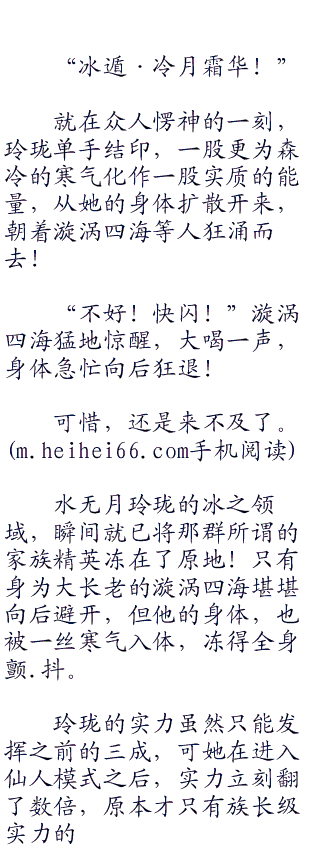 “冰遁·冷月霜华！”
就在众人愣神的一刻，
玲珑单手结印，一股更为森
冷的寒气化作一股实质的能
量，从她的身体扩散开来，
朝着漩涡四海等人狂涌而
去！
“不好！快闪！”漩涡
四海猛地惊醒，大喝一声，
身体急忙向后狂退！
可惜，还是来不及了。
(m.heihei66.com手机阅读)
水无月玲珑的冰之领
域，瞬间就已将那群所谓的
家族精英冻在了原地！只有
身为大长老的漩涡四海堪堪
向后避开，但他的身体，也
被一丝寒气入体，冻得全身
颤.抖。
玲珑的实力虽然只能发
挥之前的三成，可她在进入
仙人模式之后，实力立刻翻
了数倍，原本才只有族长级
实力的